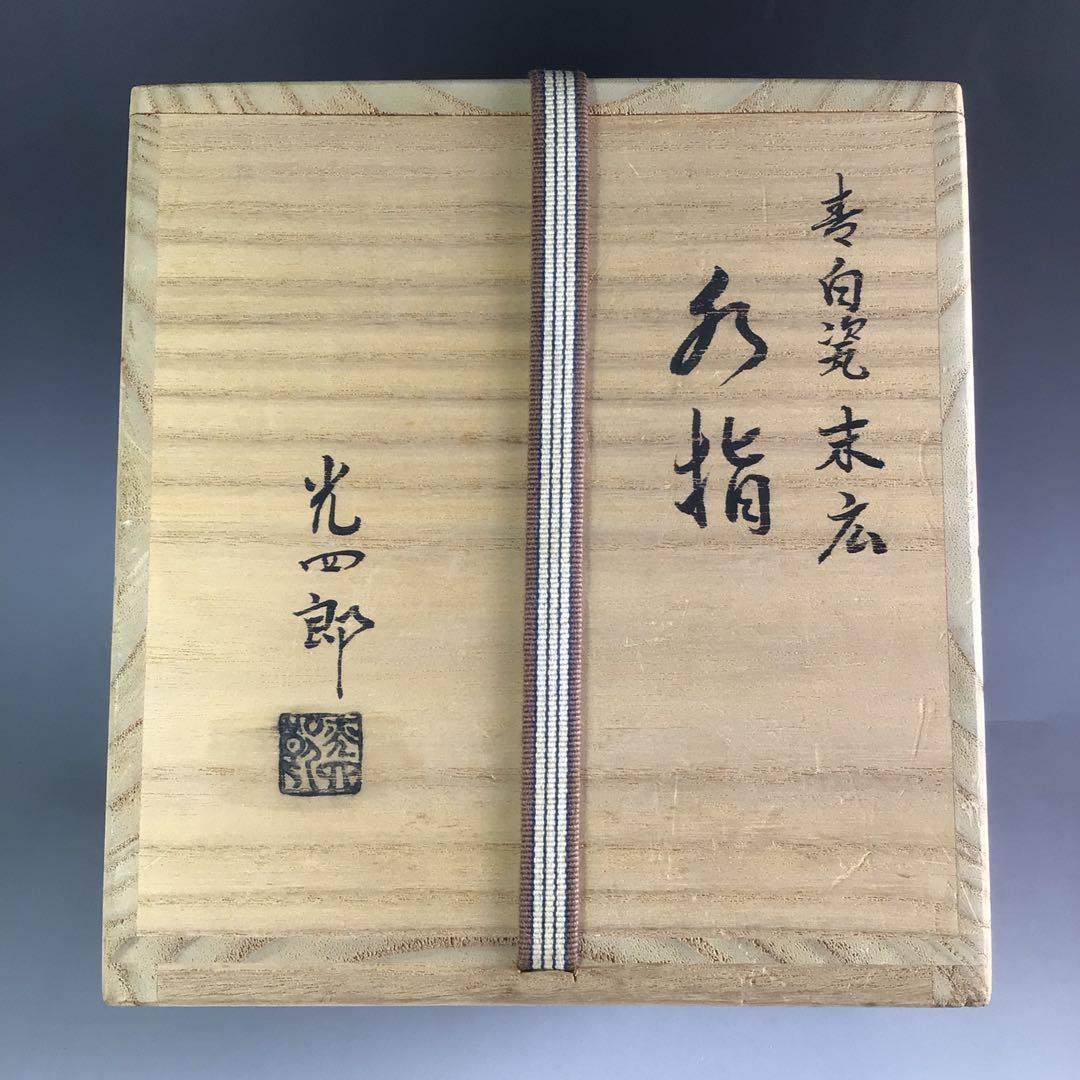 青白瓷 末広
水指
光四郎